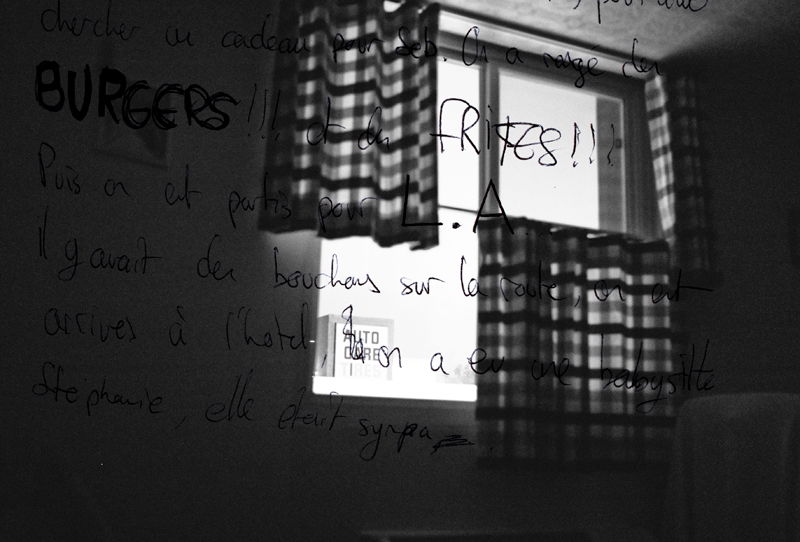 , pour une
chercher un cadeau pour Seb. On a mangé des
BURGERS !!! et des FRITES !!!
Puis on est partis pour L.A...
Il y avait des bouchons sur la route, on est
arrivés à l'hotel, on a eu une babysitte
Stephanie, elle était sympa
AUTO
CARE
TIRES